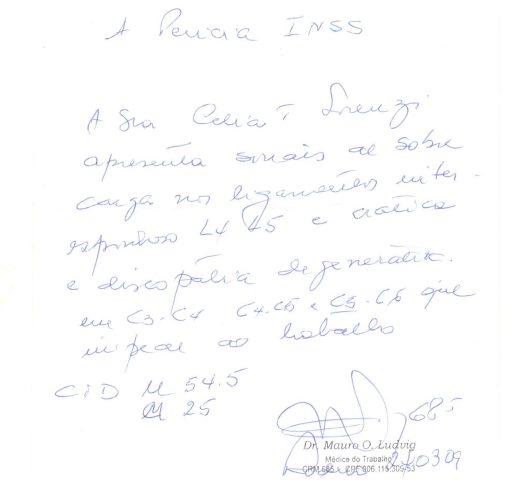 A Pericia INSS
A Sra Celia T Lorenzi
apresenta sinais de sobre
carga nos ligamentos inter-
espinhoso L4 L5 e ciática
e discopatia degenerativ.
em C3-C4 C4.C5 e C5-C6 que
impede ao trabalho
CID M 54.5
M 25
685
Dr. Mauro O. Ludvig
Médico do Trabalho
CRM 685 CPF 006.115.309/53
210309